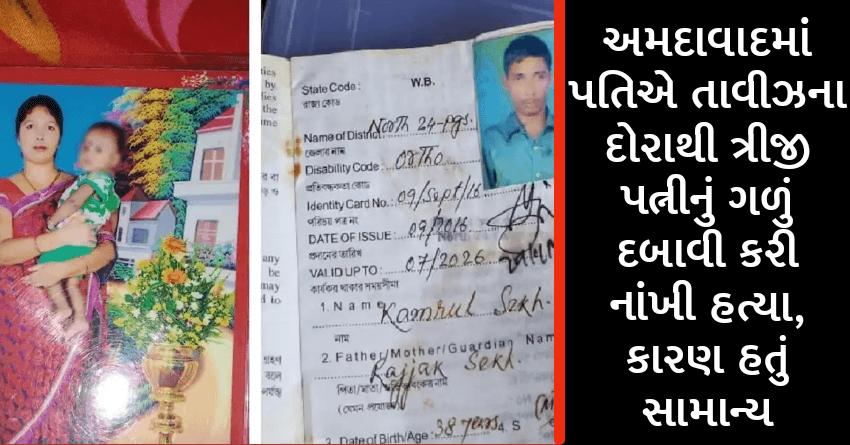 ties
by
lies
the
me
State Code: W.B.
রাজ্য কোড
Name of District: North 24-pgs.
জেলার নাম
Disability Code: Ortho
প্রতিবন্ধকতা কোড
Identity Card No. 09/Sept/16
পরিচয় পত্র নং
DATE OF ISSUE: 09/2016
প্রদানের তারিখ
VALID UPTO: 07/2026
কার্যকর থাকার সময়সীমা
any
be
may
d to
1. Name Kamrul Sekh.
নাম
2. Father/Mother/Guardian Nam
Rajjak Sekh.
পিতা/মাতা/
(যেমন প্রযোজ্য)
3. Date of Birth/Age: 38 years 4. S
અમદાવાદમાં
પતિએ તાવીઝના
દોરાથી ત્રીજી
પત્નીનું ગળું
દબાવી કરી
નાંખી હત્યા,
કારણ હતું
સામાન્ય